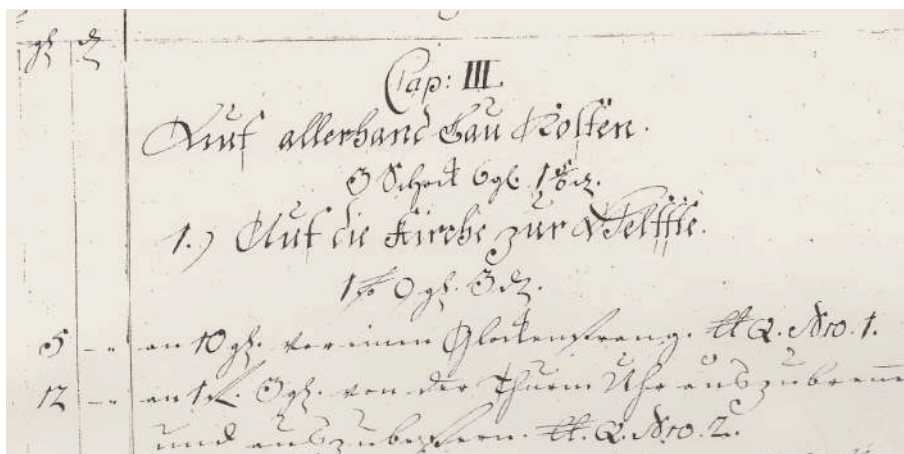 gl. d.
Cap: III.
Auf allerhand Bau Kosten.
3 Schock 6 gl. 1
1.) Auf die Kirche zur
9 gl. 3 d.
5 - " an 10 gl. vor einen Glockenstrang. Q. Nro. 1.
12 - " an 1 3 gl. von der Thurm Uhr auszubrenn
und auszubeßern. Q. Nro. 2.